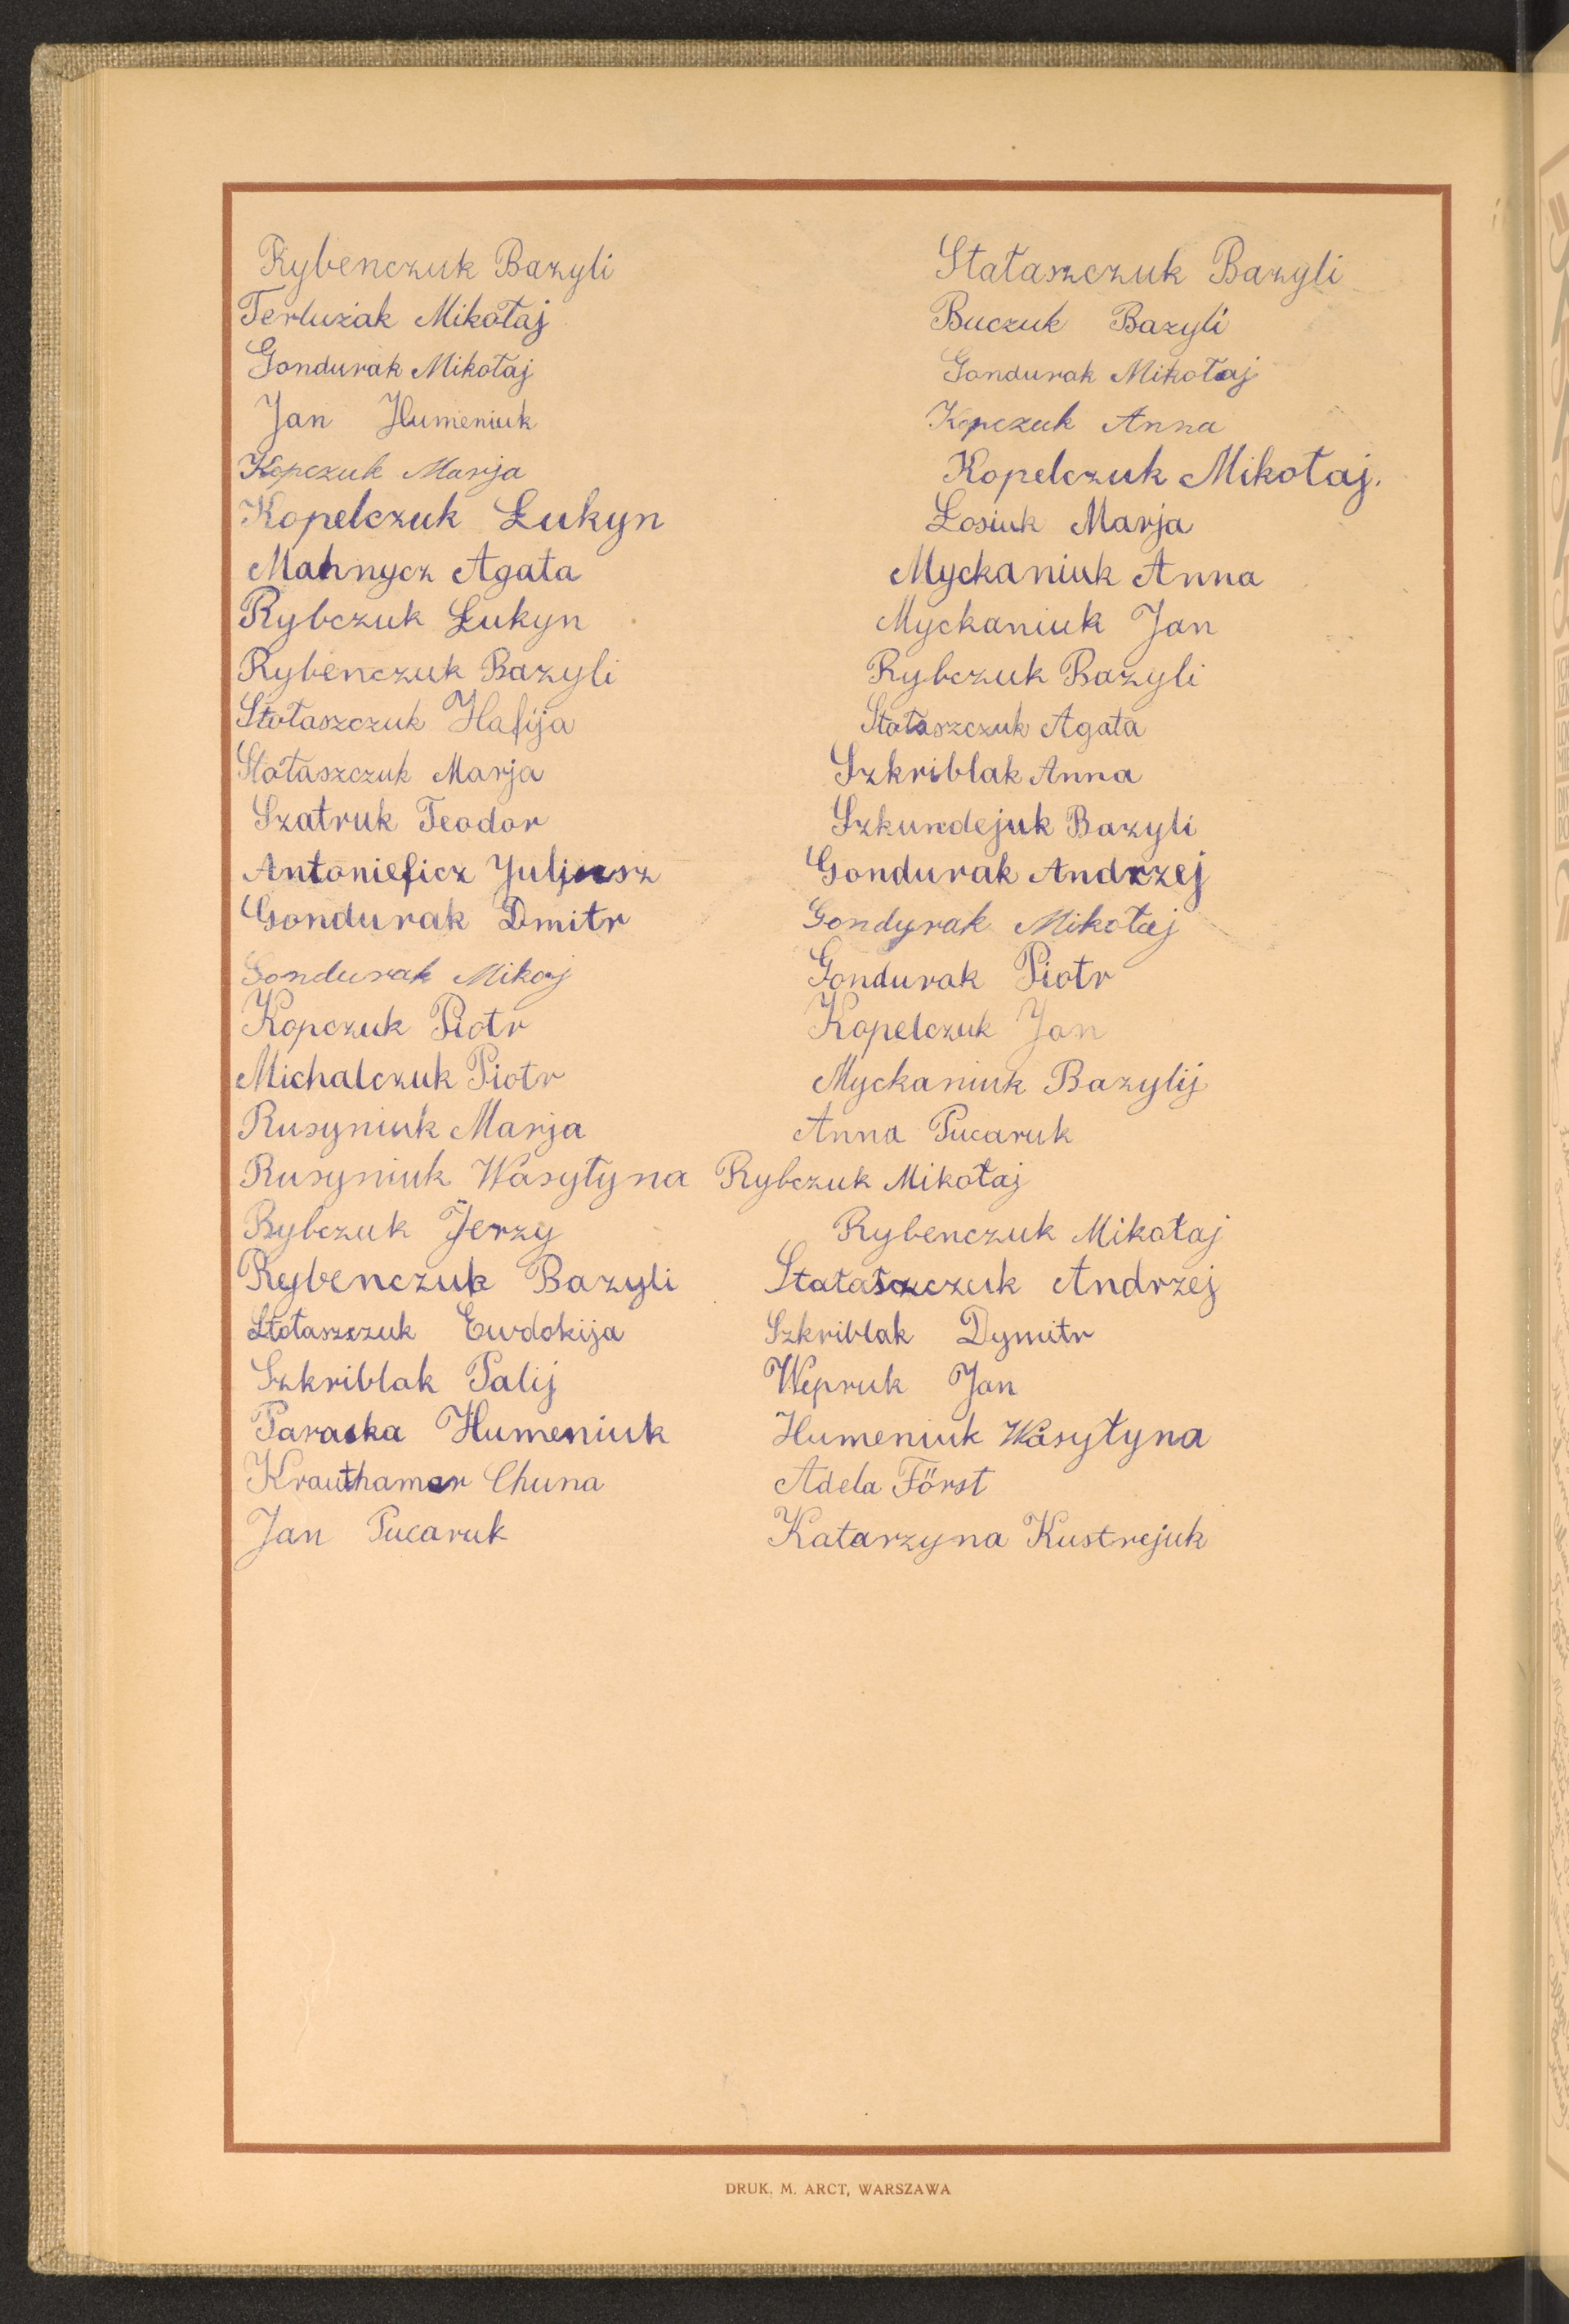 Rybenczuk Bazyli Stałaszczuk Bazyli
Terlużak Mikołaj Buczuk Bazyli
Gondurak Mikołaj Gondurak Mikołaj
Jan Humeniuk Kopczuk Anna
Kopczuk Marja Kopelczuk Mikołaj.
Kopelczuk Łukyn Łosiuk Marja
Mahnycz Agata Myckaniuk Anna
Rybczuk Łukyn Myckaniuk Jan
Rybenczuk Bazyli Rybczuk Bazyli
Stołaszczuk Hafija Stołaszczuk Agata
Stołaszczuk Marja Szkriblak Anna
Szatruk Teodor Szkundejuk Bazyli
Antonieficz Juljusz Gondurak Andrzej
Gondurak Dmitr Gondyrak Mikołaj
Gondurak Mikoj Gondurak Piotr
Kopczuk Piotr Kopelczuk Jan
Michalczuk Piotr Myckaniuk Bazylij
Rusyniuk Marja Anna Pucaruk
Rusyniuk Wasyłyna Rybczuk Mikołaj
Rybczuk Jerzy Rybenczuk Mikołaj
Rybenczuk Bazyli Stałaszczuk Andrzej
Stołaszczuk Ewdokija Szkriblak Dymitr
Szkriblak Palij Wepruk Jan
Paraska Humeniuk Humeniuk Wasyłyna
Krauthamer Chuna Adela Först
Jan Pucaruk Katarzyna Kustrejuk
DRUK. M. ARCT, WARSZAWA